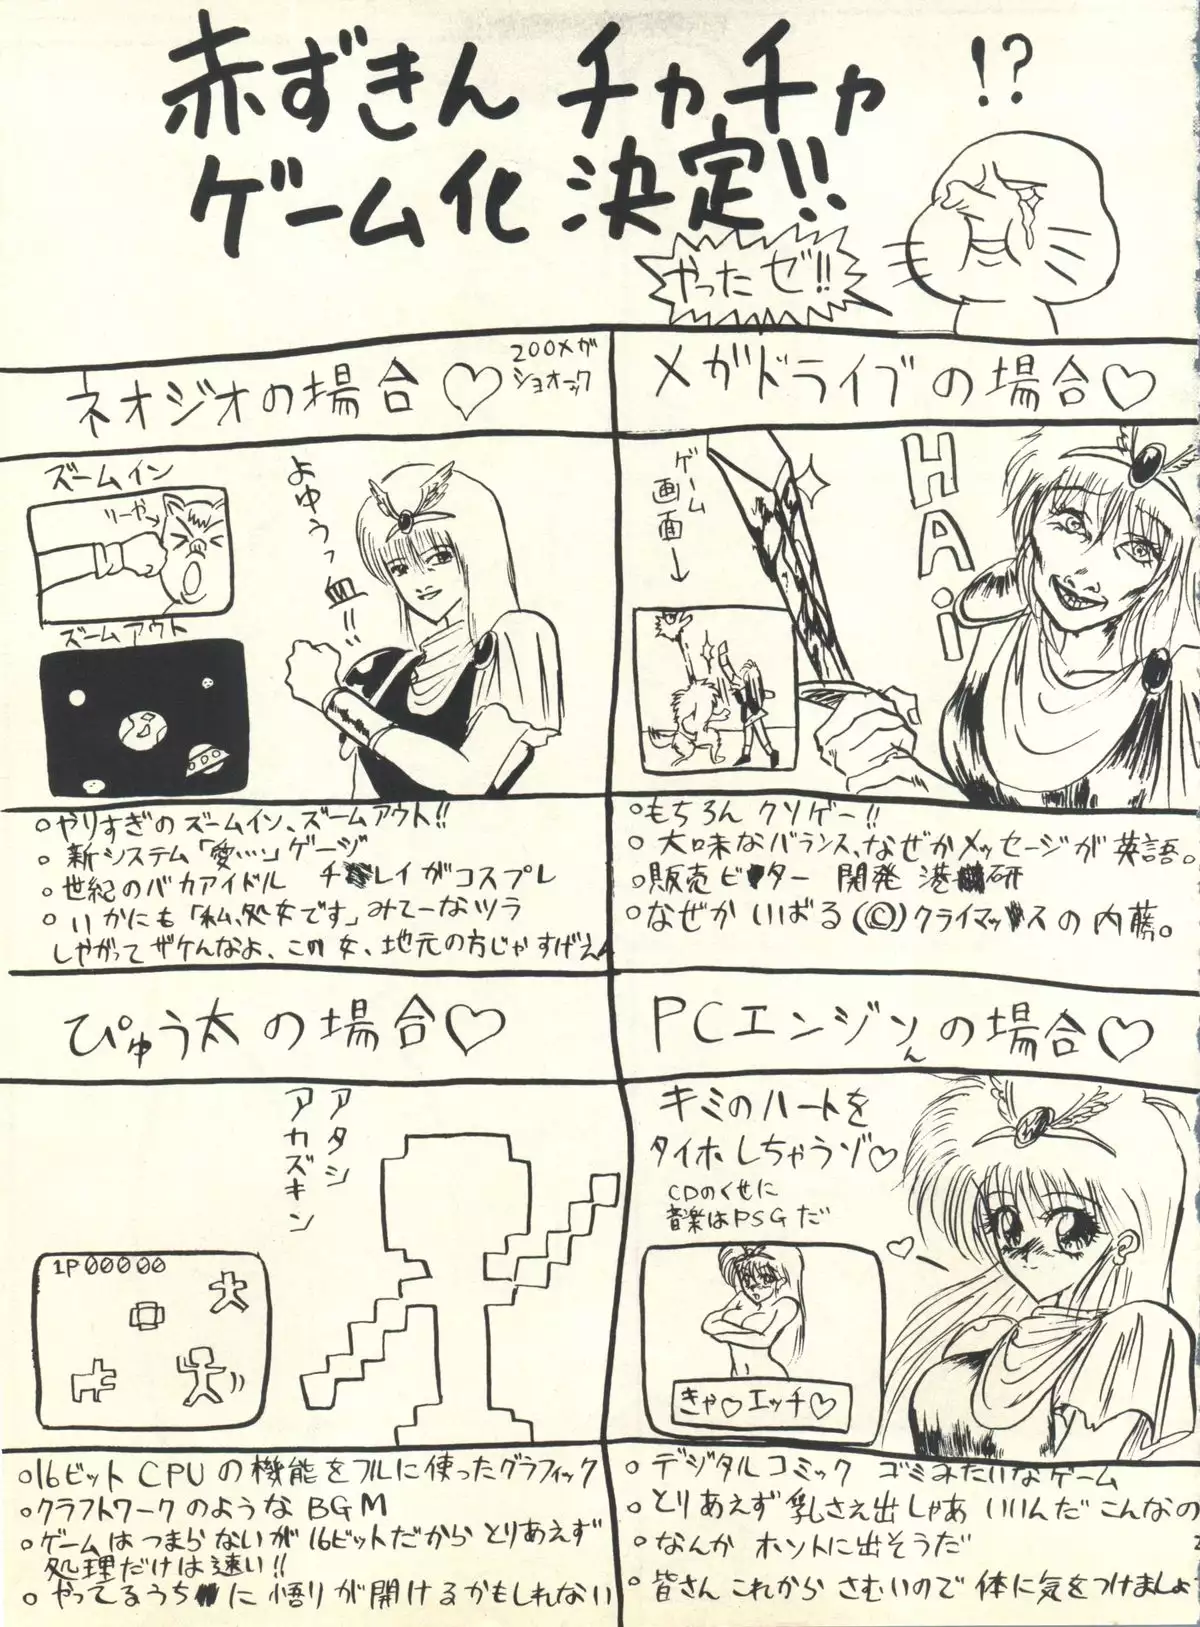 赤ずきんチャチャ
ゲーム化決定!!
!?
やったゼ!!
ネオジオの場合♡
200メガ
ショオック
ズームイン
リーヤ→
ズームアウト
よゆうっ血!!
・やりすぎのズームイン、ズームアウト!!
・新システム「愛…」ゲージ
・世紀のバカアイドル チ レイがコスプレ
・いかにも「私、処女です」みてーなツラ
しやがってザケんなよ、この女、地元の方じゃすげえ
メガドライブの場合♡
ゲーム
画面→
HAi
・もちろんクソゲー!!
・大味なバランス、なぜかメッセージが英語。
・販売ビ ター 開発 港 研
・なぜかいばる(©)クライマッ スの内藤。
ぴゅう太の場合♡
アタシ
アカズキン
1P00000
・16ビットCPUの機能をフルに使ったグラフィック
・クラフトワークのようなBGM
・ゲームはつまらないが16ビットだからとりあえず
処理だけは速い!!
・やってるうち に悟りが開けるかもしれない
PCエンジンの場合♡
ん
キミのハートを
タイホしちゃうゾ♡
CDのくせに
音楽はPSGだ
きゃ♡エッチ♡
・デジタルコミック ゴミみたいなゲーム
・とりあえず乳さえ出しゃあいいんだこんなの
・なんかホントに出そうだ
・皆さんこれからさむいので体に気をつけましょ
2